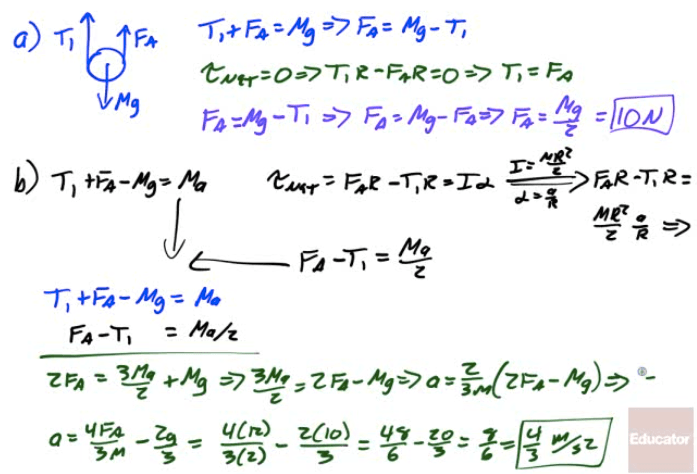 a) T₁ F_A T₁+F_A=Mg⇒F_A=Mg-T₁
Mg τ_NET=0⇒T₁R-F_AR=0⇒T₁=F_A
F_A=Mg-T₁⇒F_A=Mg-F_A⇒F_A=Mg/2=10N
b) T₁+F_A-Mg=Ma τ_NET=F_AR-T₁R=Iα I=MR²/2 α=a/R F_AR-T₁R=
MR²/2 a/R ⇒
F_A-T₁=Ma/2
T₁+F_A-Mg=Ma
F_A-T₁ =Ma/2
2F_A=3Ma/2+Mg⇒3Ma/2=2F_A-Mg⇒a=2/3M(2F_A-Mg)⇒
a=4F_A/3M-2g/3=4(12)/3(2)-2(10)/3=48/6-20/3=8/6=4/3 m/s²
Educator